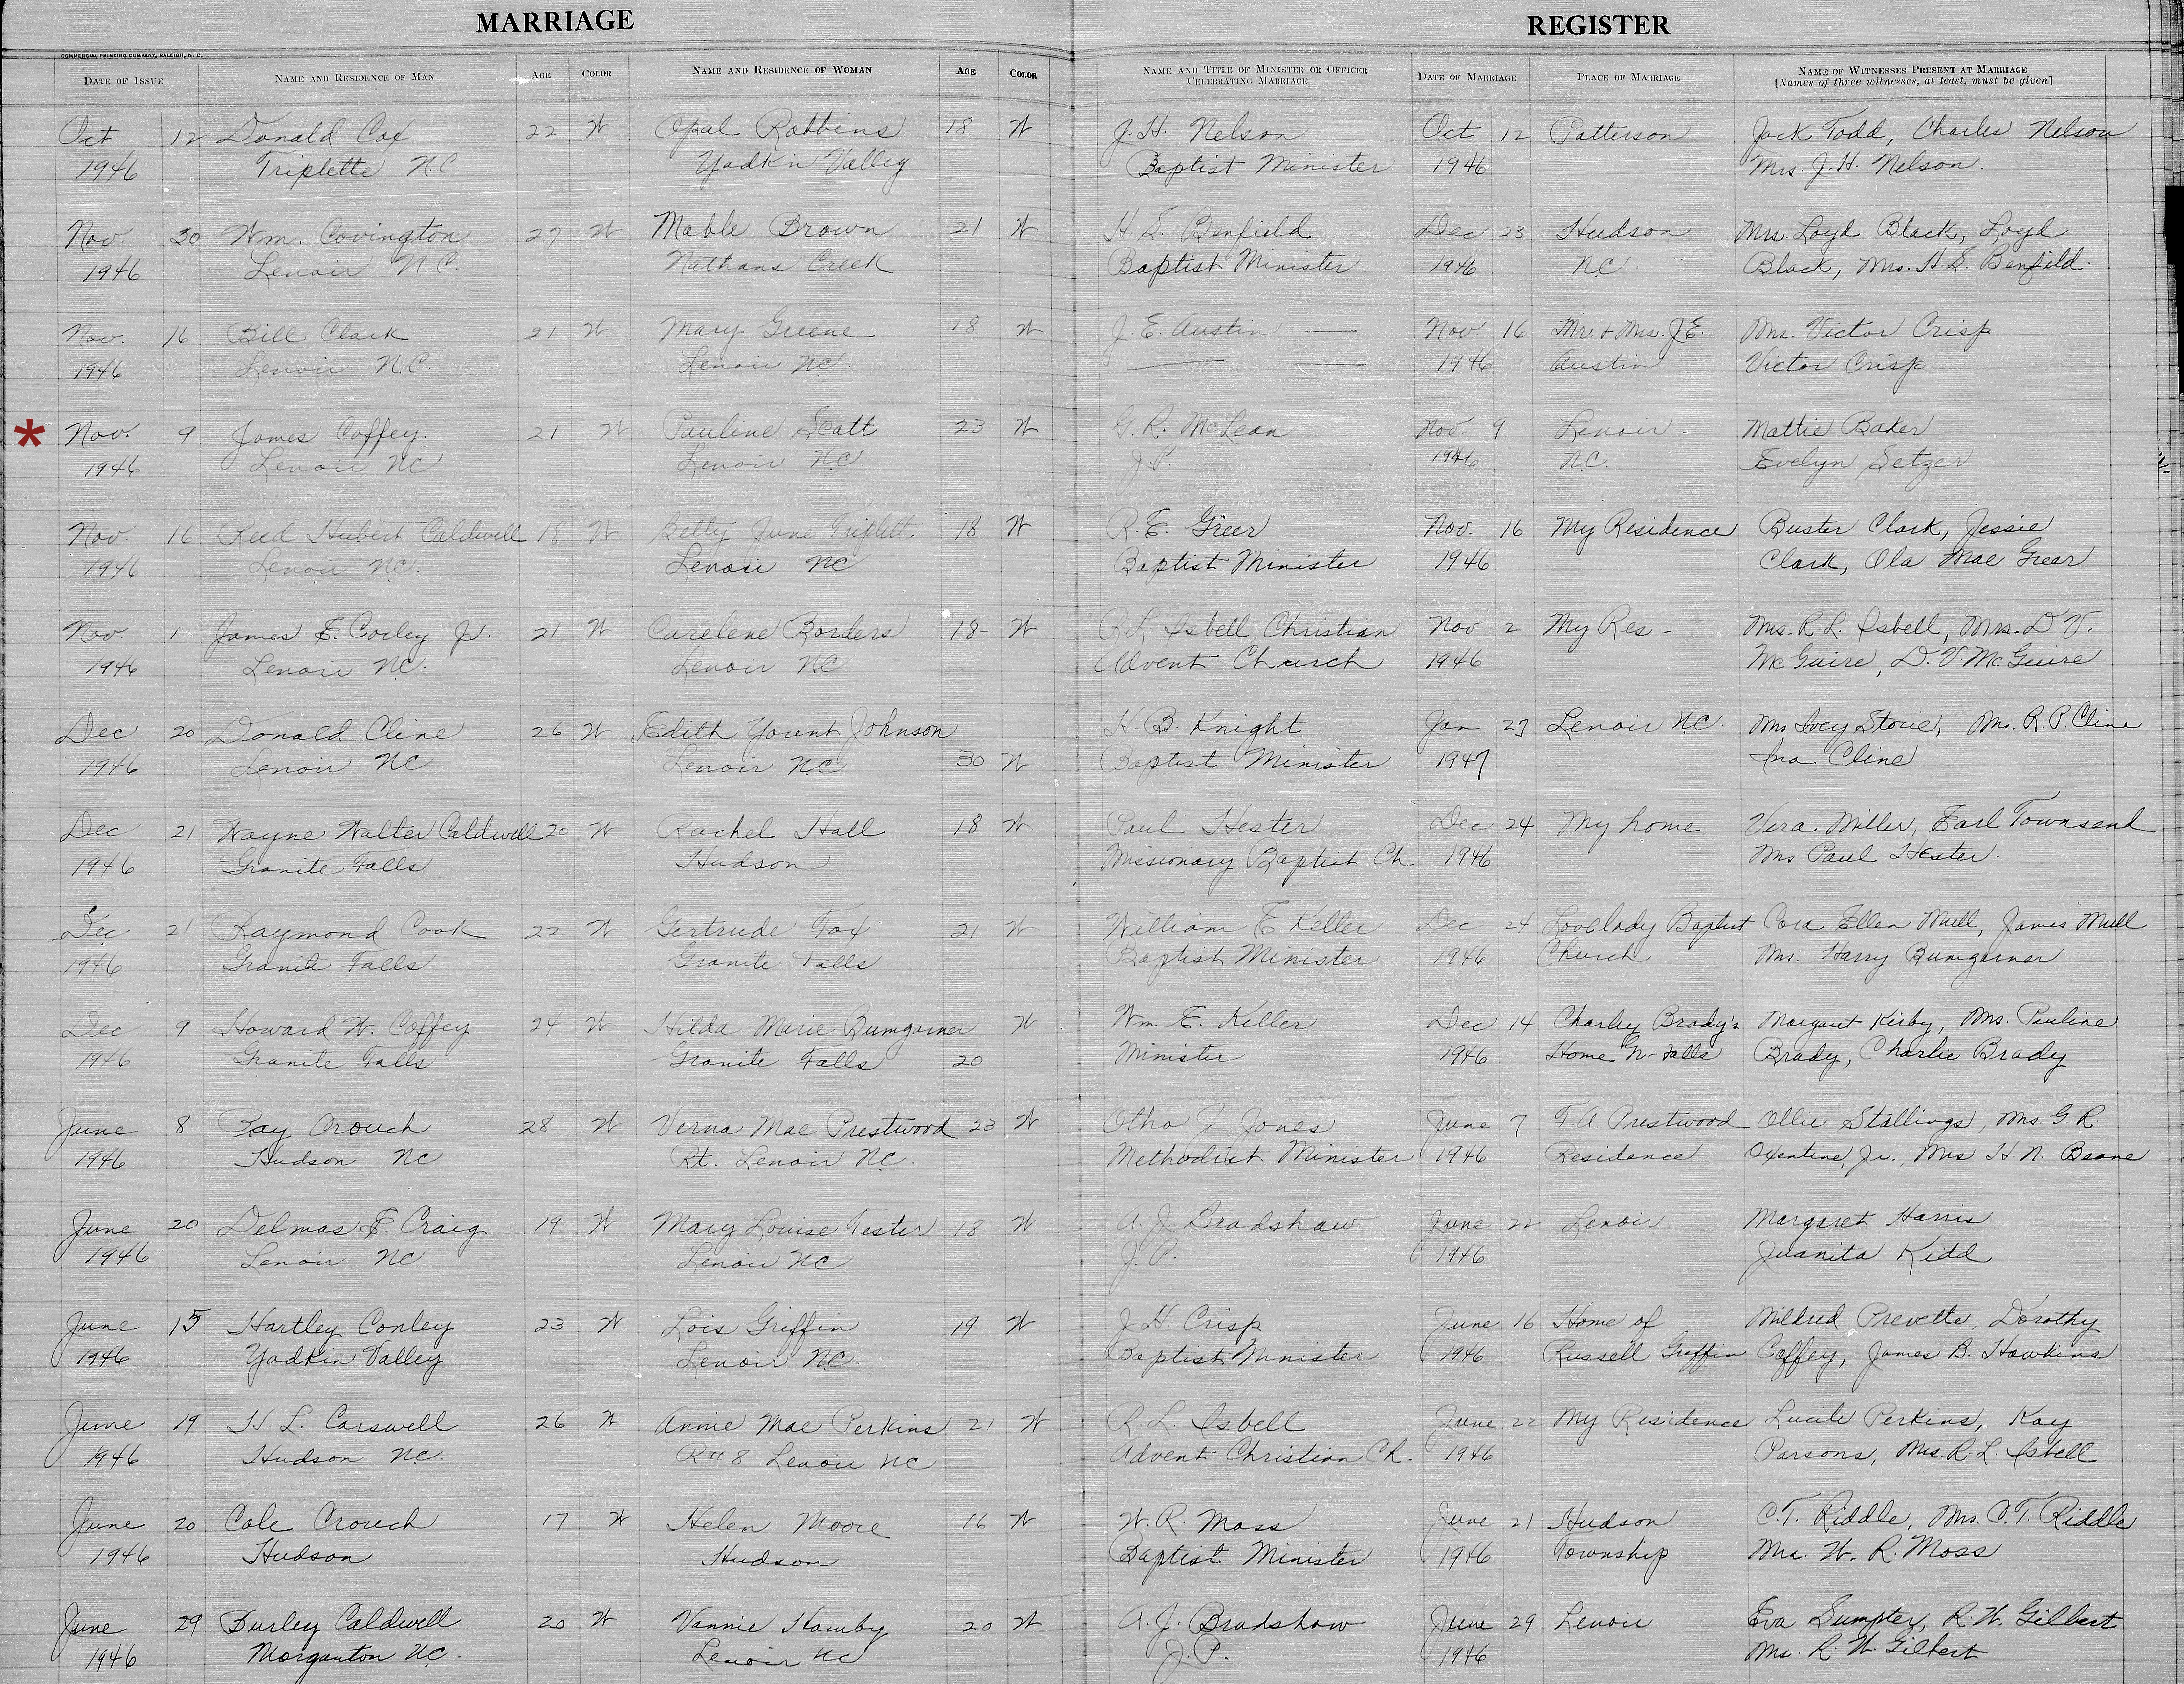 MARRIAGE REGISTER
COMMERCIAL PRINTING COMPANY, RALEIGH, N. C.
DATE OF ISSUE NAME AND RESIDENCE OF MAN AGE COLOR NAME AND RESIDENCE OF WOMAN AGE COLOR NAME AND TITLE OF MINISTER OR OFFICER CELEBRATING MARRIAGE DATE OF MARRIAGE PLACE OF MARRIAGE NAME OF WITNESSES PRESENT AT MARRIAGE [Names of three witnesses, at least, must be given]
Oct 12 Donald Cox 22 W Opal Robbins 18 W J. H. Nelson Oct 12 Patterson Jack Todd, Charles Nelson
1946 Triplette N.C. Yadkin Valley Baptist Minister 1946 Mrs. J. H. Nelson.
Nov. 30 Wm. Covington 27 W Mable Brown 21 W H. S. Benfield Dec 23 Hudson Mrs. Loyd Black, Loyd
1946 Lenoir N.C. Nathans Creek Baptist Minister 1946 N.C. Black, Mrs. H. S. Benfield.
Nov. 16 Bill Clark 21 W Mary Greene 18 W J. E. Austin — Nov. 16 Mr. + Mrs. J E. Mrs. Victor Crisp
1946 Lenoir N.C. Lenoir NC. — — 1946 Austin Victor Crisp
* Nov. 9 James Coffey. 21 W Pauline Scott 23 W G. R. McLean Nov. 9 Lenoir Mattie Baker
1946 Lenoir NC Lenoir N.C. J.P. 1946 N.C. Evelyn Setzer
Nov. 16 Reed Hubert Caldwell 18 W Betty June Triplett. 18 W R. E. Greer Nov. 16 My Residence Buster Clark, Jessie
1946 Lenoir NC. Lenoir NC Baptist Minister 1946 Clark, Ola Mae Greer
Nov. 1 James E. Corley Jr. 21 W Carelene Borders 18- W R L. Isbell Christian Nov 2 My Res - Mrs. R. L. Isbell, Mrs. D V.
1946 Lenoir NC. Lenoir NC Advent Church 1946 McGuire, D. V. McGuire
Dec 20 Donald Cline 26 W Edith Yount Johnson H. B. Knight Jan 27 Lenoir N.C. Mrs Ivey Storie, Mrs. R. P. Cline
1946 Lenoir NC Lenoir N.C. 30 W Baptist Minister 1947 Ina Cline
Dec 21 Wayne Walter Caldwell 20 W Rachel Hall 18 W Paul Hester Dec 24 My home Vera Miller, Earl Townsend
1946 Granite Falls Hudson Missionary Baptist Ch. 1946 Mrs Paul Hester.
Dec 21 Raymond Cook 22 W Gertrude Fox 21 W William E Keller Dec 24 Lovelady Baptist Cora Ellen Mull, James Mull
1946 Granite Falls Granite Falls Baptist Minister 1946 Church Mrs. Harry Bumgarner
Dec 9 Howard W. Coffey 24 W Hilda Marie Bumgarner W Wm E. Keller Dec 14 Charley Brady's Margaret Kirby, Mrs. Pauline
1946 Granite Falls Granite Falls 20 Minister 1946 Home Gr- Falls Brady, Charlie Brady
June 8 Ray Crouch 28 W Verna Mae Prestwood 23 W Otho J Jones June 7 T. A Prestwood Ollie Stallings, Mrs. G. R.
1946 Hudson NC Rt. Lenoir NC. Methodist Minister 1946 Residence Oxentine, Jr., Mrs H. N. Beane
June 20 Delmas F. Craig 19 W Mary Louise Tester 18 W A. J. Bradshaw June 22 Lenoir Margaret Harris
1946 Lenoir NC Lenoir NC J. P. 1946 Juanita Kidd
June 15 Hartley Conley 23 W Lois Griffin 19 W J. H. Crisp June 16 Home of Mildred Prevette, Dorothy
1946 Yadkin Valley Lenoir NC. Baptist Minister 1946 Russell Griffin Coffey, James B. Hawkins
June 19 H. L. Carswell 26 W Annie Mae Perkins 21 W R. L. Isbell June 22 My Residence Lucile Perkins, Kay
1946 Hudson NC. R#8 Lenoir NC Advent Christian Ch. 1946 Parsons, Mrs. R. L. Isbell
June 20 Cole Crouch 17 W Helen Moore 16 W W. R. Moss June 21 Hudson C. T. Riddle, Mrs. C. T. Riddle
1946 Hudson Hudson Baptist Minister 1946 Township Mrs. W. R. Moss
June 29 Durley Caldwell 20 W Vannie Hamby 20 W A. J. Bradshaw June 29 Lenoir Eva Sumpter, R. W. Gilbert
1946 Morganton NC. Lenoir NC J. P. 1946 Mrs. R. W. Gilbert